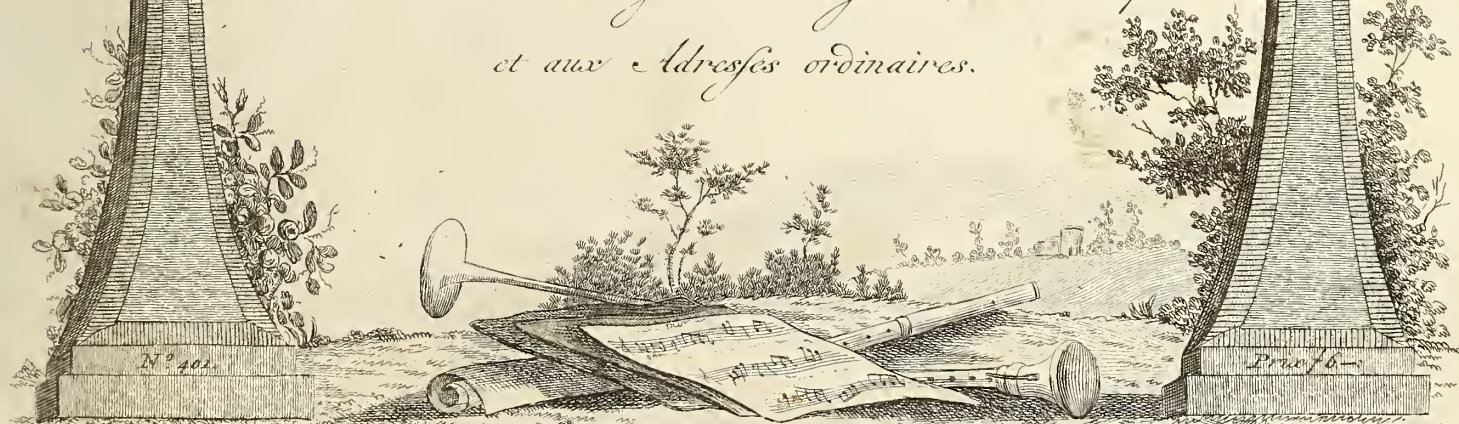 et aux Adresses ordinaires.
N° 401.
Prix f 6-: